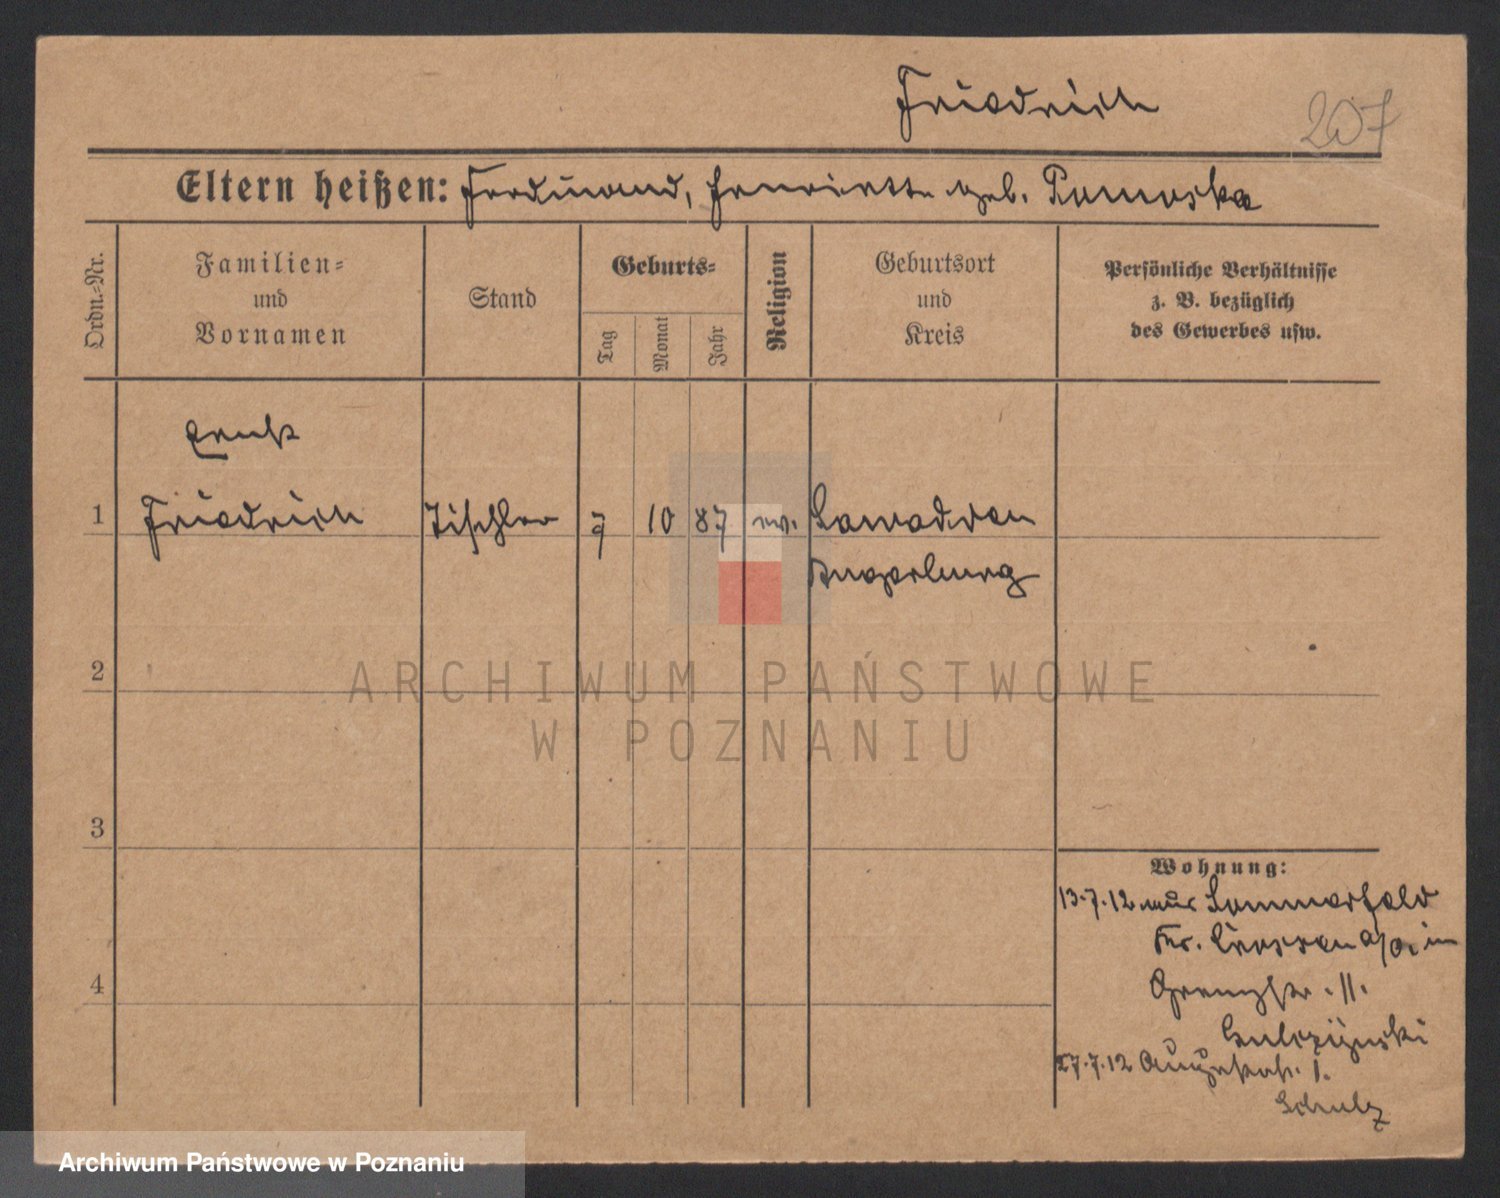 Friedrich
207
Eltern heißen: Ferdinand, Henriette geb.
Ordn.-Nr.
Familien-
und
Vornamen
Stand
Geburts-
Tag
Monat
Jahr
Religion
Geburtsort
und
Kreis
Persönliche Verhältnisse
z. B. bezüglich
des Gewerbes usw.
Ernst
1 Friedrich Tischler 7 10 87 ev.
Angerburg
2
3
4
Wohnung:
13.7.12 aus Sommerfeld
Kr. Crossen a/O. in
Grenzstr. 11.
27.7.12 Augustastr. 1.
Schulz
ARCHIWUM PAŃSTWOWE
W POZNANIU
Archiwum Państwowe w Poznaniu